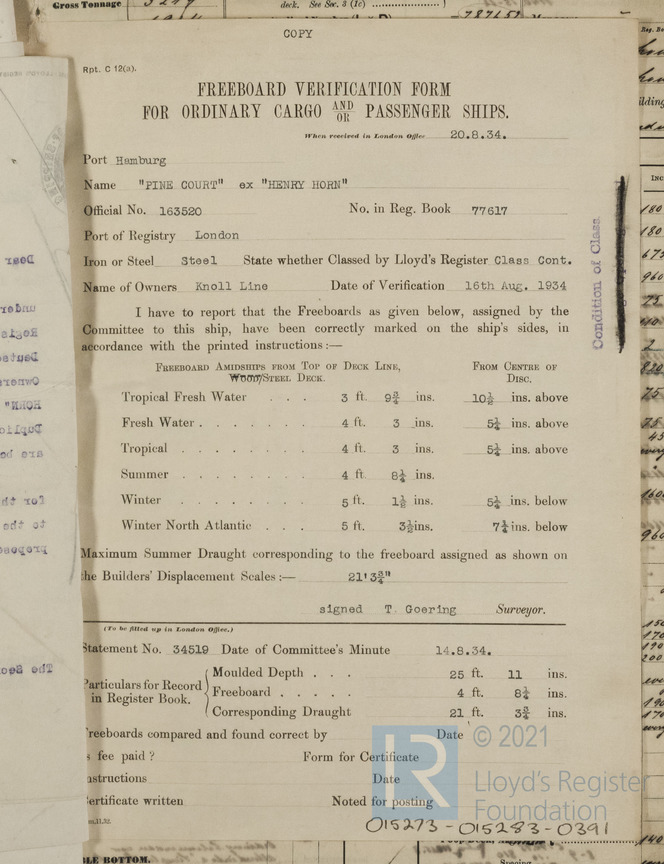 Gross Tonnage
deck. See Sec. 3 (1c)
COPY
Rpt. C 12(a).
FREEBOARD VERIFICATION FORM
FOR ORDINARY CARGO AND/OR PASSENGER SHIPS.
When received in London Office 20.8.34.
Port Hamburg
Name "PINE COURT" ex "HENRY HORN"
Official No. 163520 No. in Reg. Book 77617
Port of Registry London
Iron or Steel Steel State whether Classed by Lloyd's Register Class Cont.
Name of Owners Knoll Line Date of Verification 16th Aug. 1934
Condition of Class
I have to report that the Freeboards as given below, assigned by the
Committee to this ship, have been correctly marked on the ship's sides, in
accordance with the printed instructions :—
FREEBOARD AMIDSHIPS FROM TOP OF DECK LINE, FROM CENTRE OF
WOOD/STEEL DECK. DISC.
Tropical Fresh Water . . . 3 ft. 9¾ ins. 10½ ins. above
Fresh Water . . . . . . . 4 ft. 3 ins. 5¼ ins. above
Tropical . . . . . . . . 4 ft. 3 ins. 5¼ ins. above
Summer . . . . . . . . 4 ft. 8¼ ins.
Winter . . . . . . . . 5 ft. 1½ ins. 5¼ ins. below
Winter North Atlantic . . . 5 ft. 3½ ins. 7¼ ins. below
Maximum Summer Draught corresponding to the freeboard assigned as shown on
the Builders' Displacement Scales :— 21'3¾"
signed T. Goering Surveyor.
(To be filled up in London Office.)
Statement No. 34519 Date of Committee's Minute 14.8.34.
Particulars for Record in Register Book.
Moulded Depth . . . 25 ft. 11 ins.
Freeboard . . . . . 4 ft. 8¼ ins.
Corresponding Draught 21 ft. 3¾ ins.
reeboards compared and found correct by Date
s fee paid ? Form for Certificate
nstructions Date
ertificate written Noted for posting
© 2021
Lloyd's Register
Foundation
015273-015283-0391
LE BOTTOM.